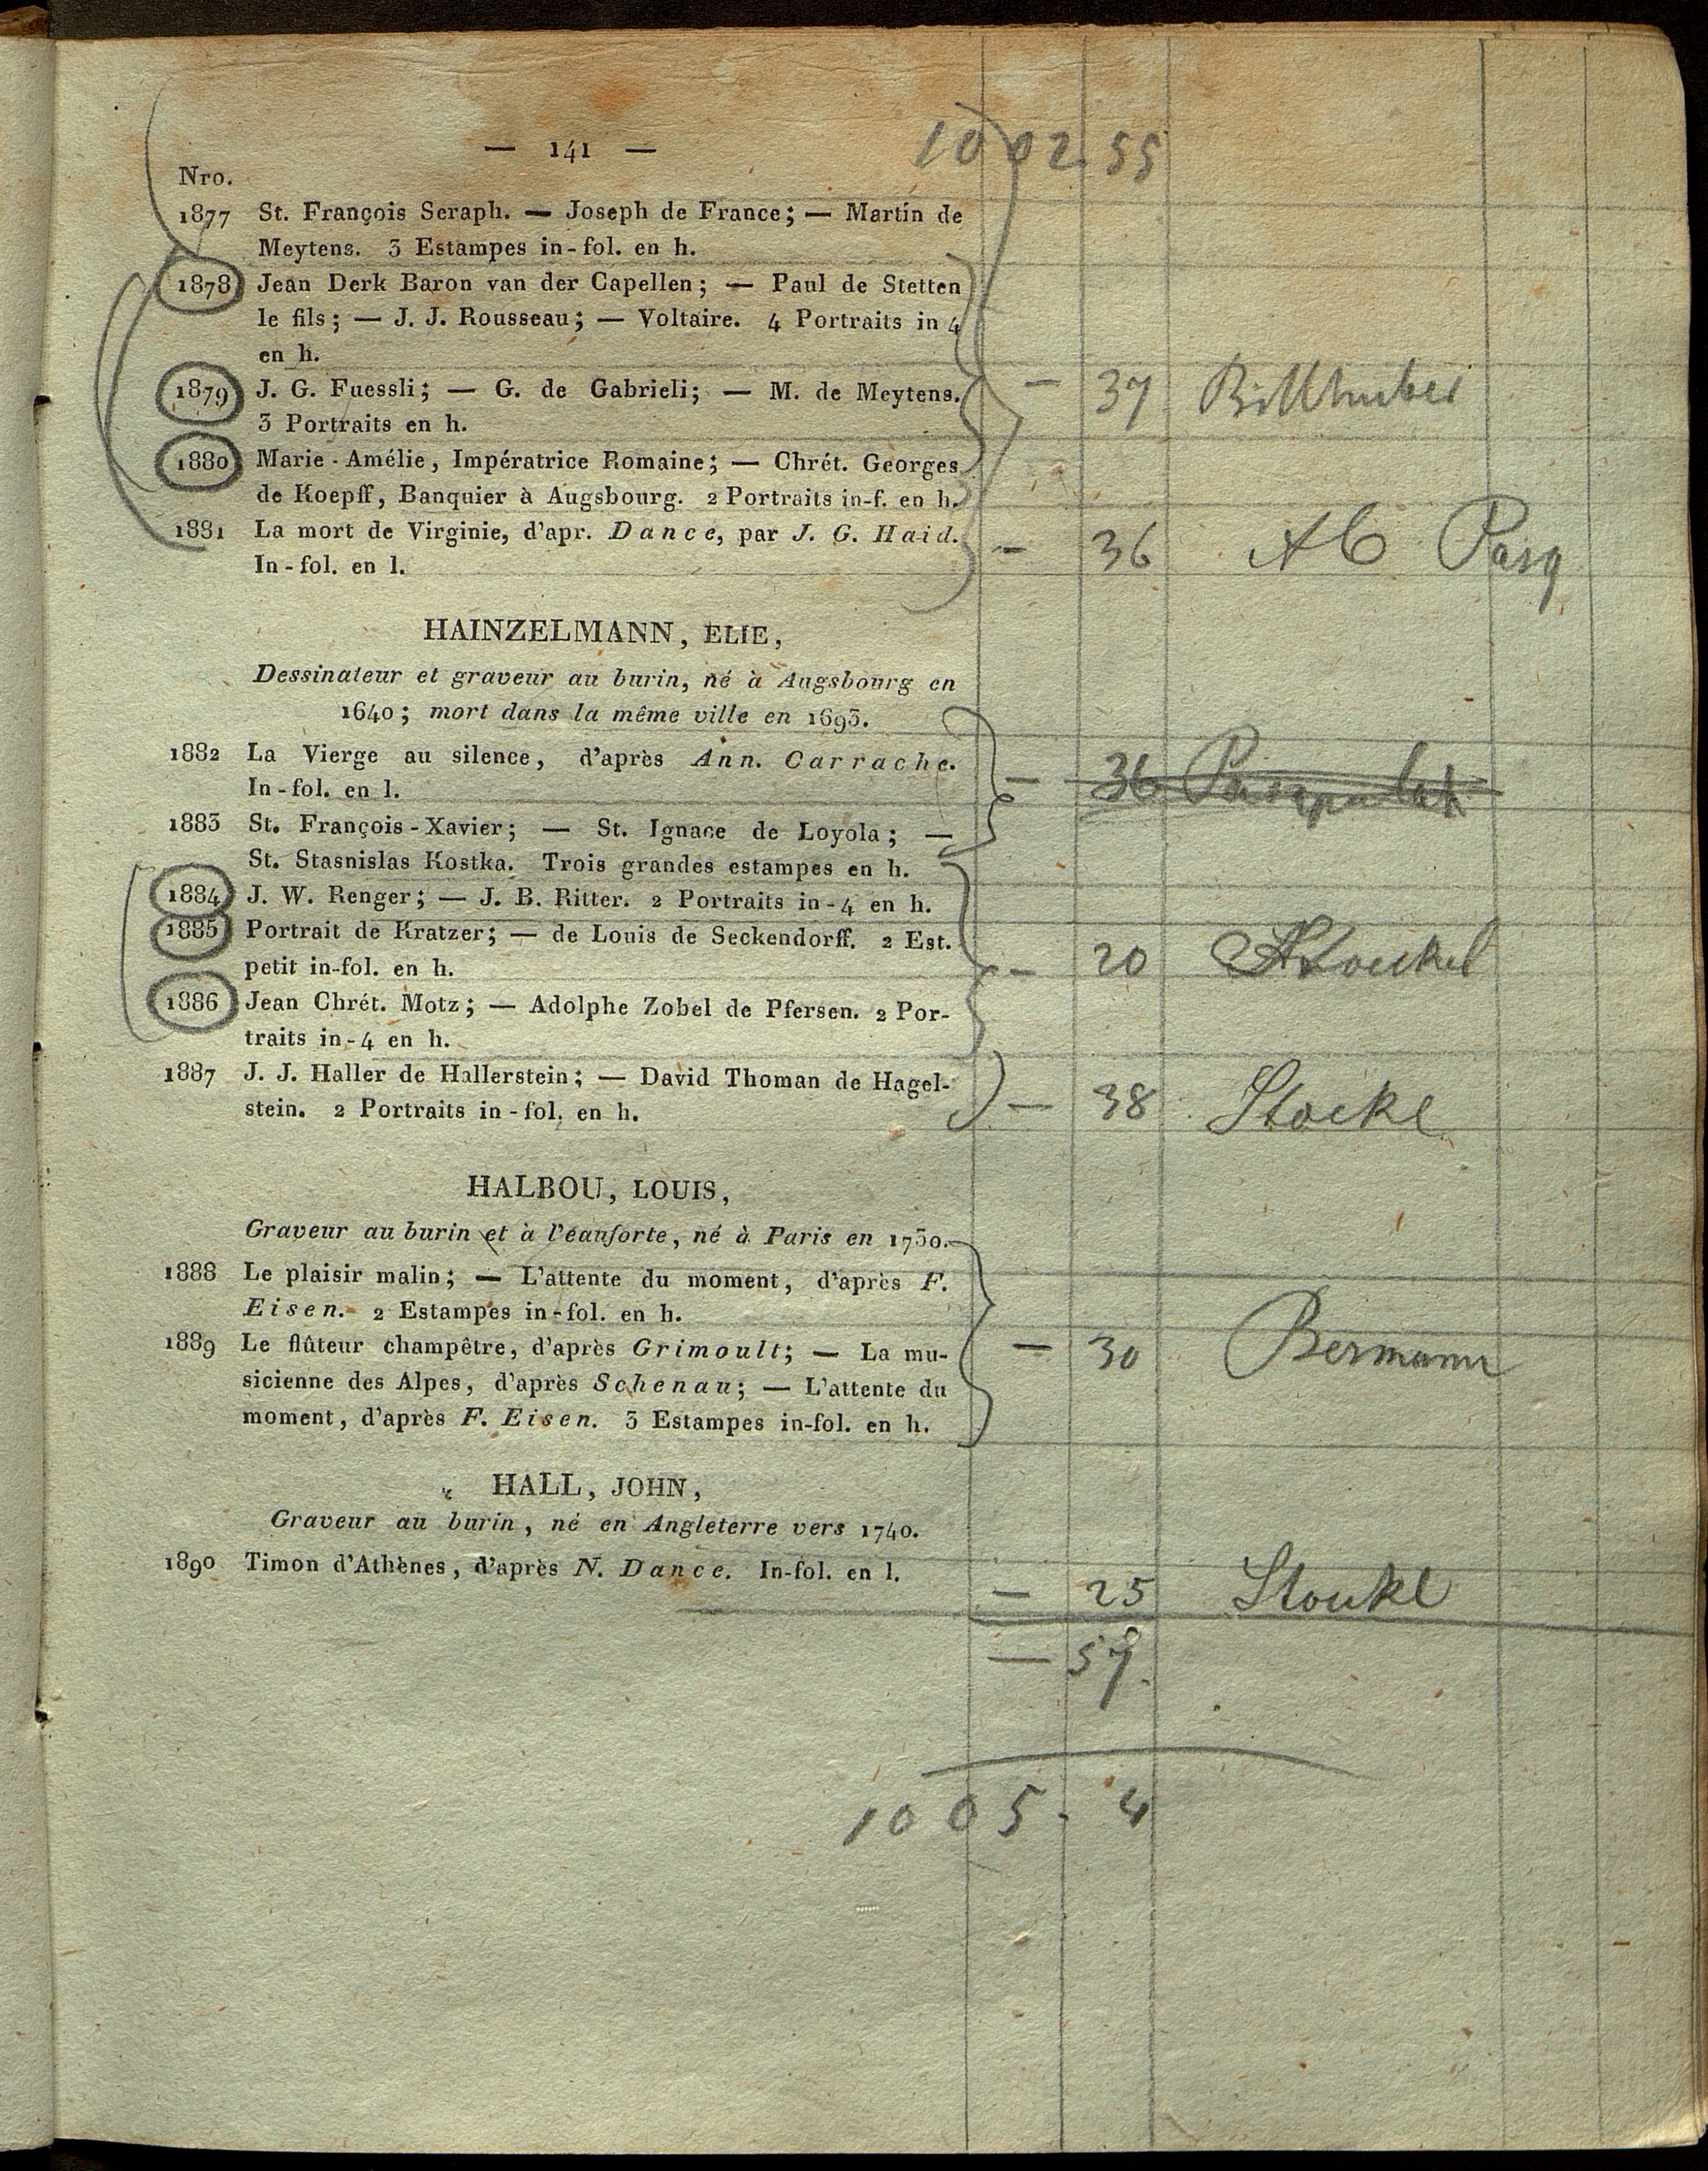 — 141 —
1002.55
Nro.
1877 St. François Seraph. — Joseph de France; — Martin de
Meytens. 3 Estampes in-fol. en h.
1878 Jean Derk Baron van der Capellen; — Paul de Stetten
le fils; — J. J. Rousseau; — Voltaire. 4 Portraits in 4
en h.
1879 J. G. Fuessli; — G. de Gabrieli; — M. de Meytens. — 37
3 Portraits en h.
1880 Marie-Amélie, Impératrice Romaine; — Chrét. Georges
de Koepff, Banquier à Augsbourg. 2 Portraits in-f. en h.
1881 La mort de Virginie, d'apr. Dance, par J. G. Haid. — 36
In-fol. en l.
HAINZELMANN, ELIE,
Dessinateur et graveur au burin, né à Augsbourg en
1640; mort dans la même ville en 1693.
1882 La Vierge au silence, d'après Ann. Carrache. — 36
In-fol. en l.
1883 St. François-Xavier; — St. Ignace de Loyola; —
St. Stasnislas Kostka. Trois grandes estampes en h.
1884 J. W. Renger; — J. B. Ritter. 2 Portraits in-4 en h.
1885 Portrait de Kratzer; — de Louis de Seckendorff. 2 Est. — 20
petit in-fol. en h.
1886 Jean Chrét. Motz; — Adolphe Zobel de Pfersen. 2 Por-
traits in-4 en h.
1887 J. J. Haller de Hallerstein; — David Thoman de Hagel- — 38 Stockl
stein. 2 Portraits in-fol. en h.
HALBOU, LOUIS,
Graveur au burin et à l'eauforte, né à Paris en 1730.
1888 Le plaisir malin; — L'attente du moment, d'après F.
Eisen. 2 Estampes in-fol. en h.
1889 Le flûteur champêtre, d'après Grimoult; — La mu- — 30 Bermann
sicienne des Alpes, d'après Schenau; — L'attente du
moment, d'après F. Eisen. 3 Estampes in-fol. en h.
HALL, JOHN,
Graveur au burin, né en Angleterre vers 1740.
1890 Timon d'Athènes, d'après N. Dance. In-fol. en l. — 25 Stoukl
— 57.
1005.4